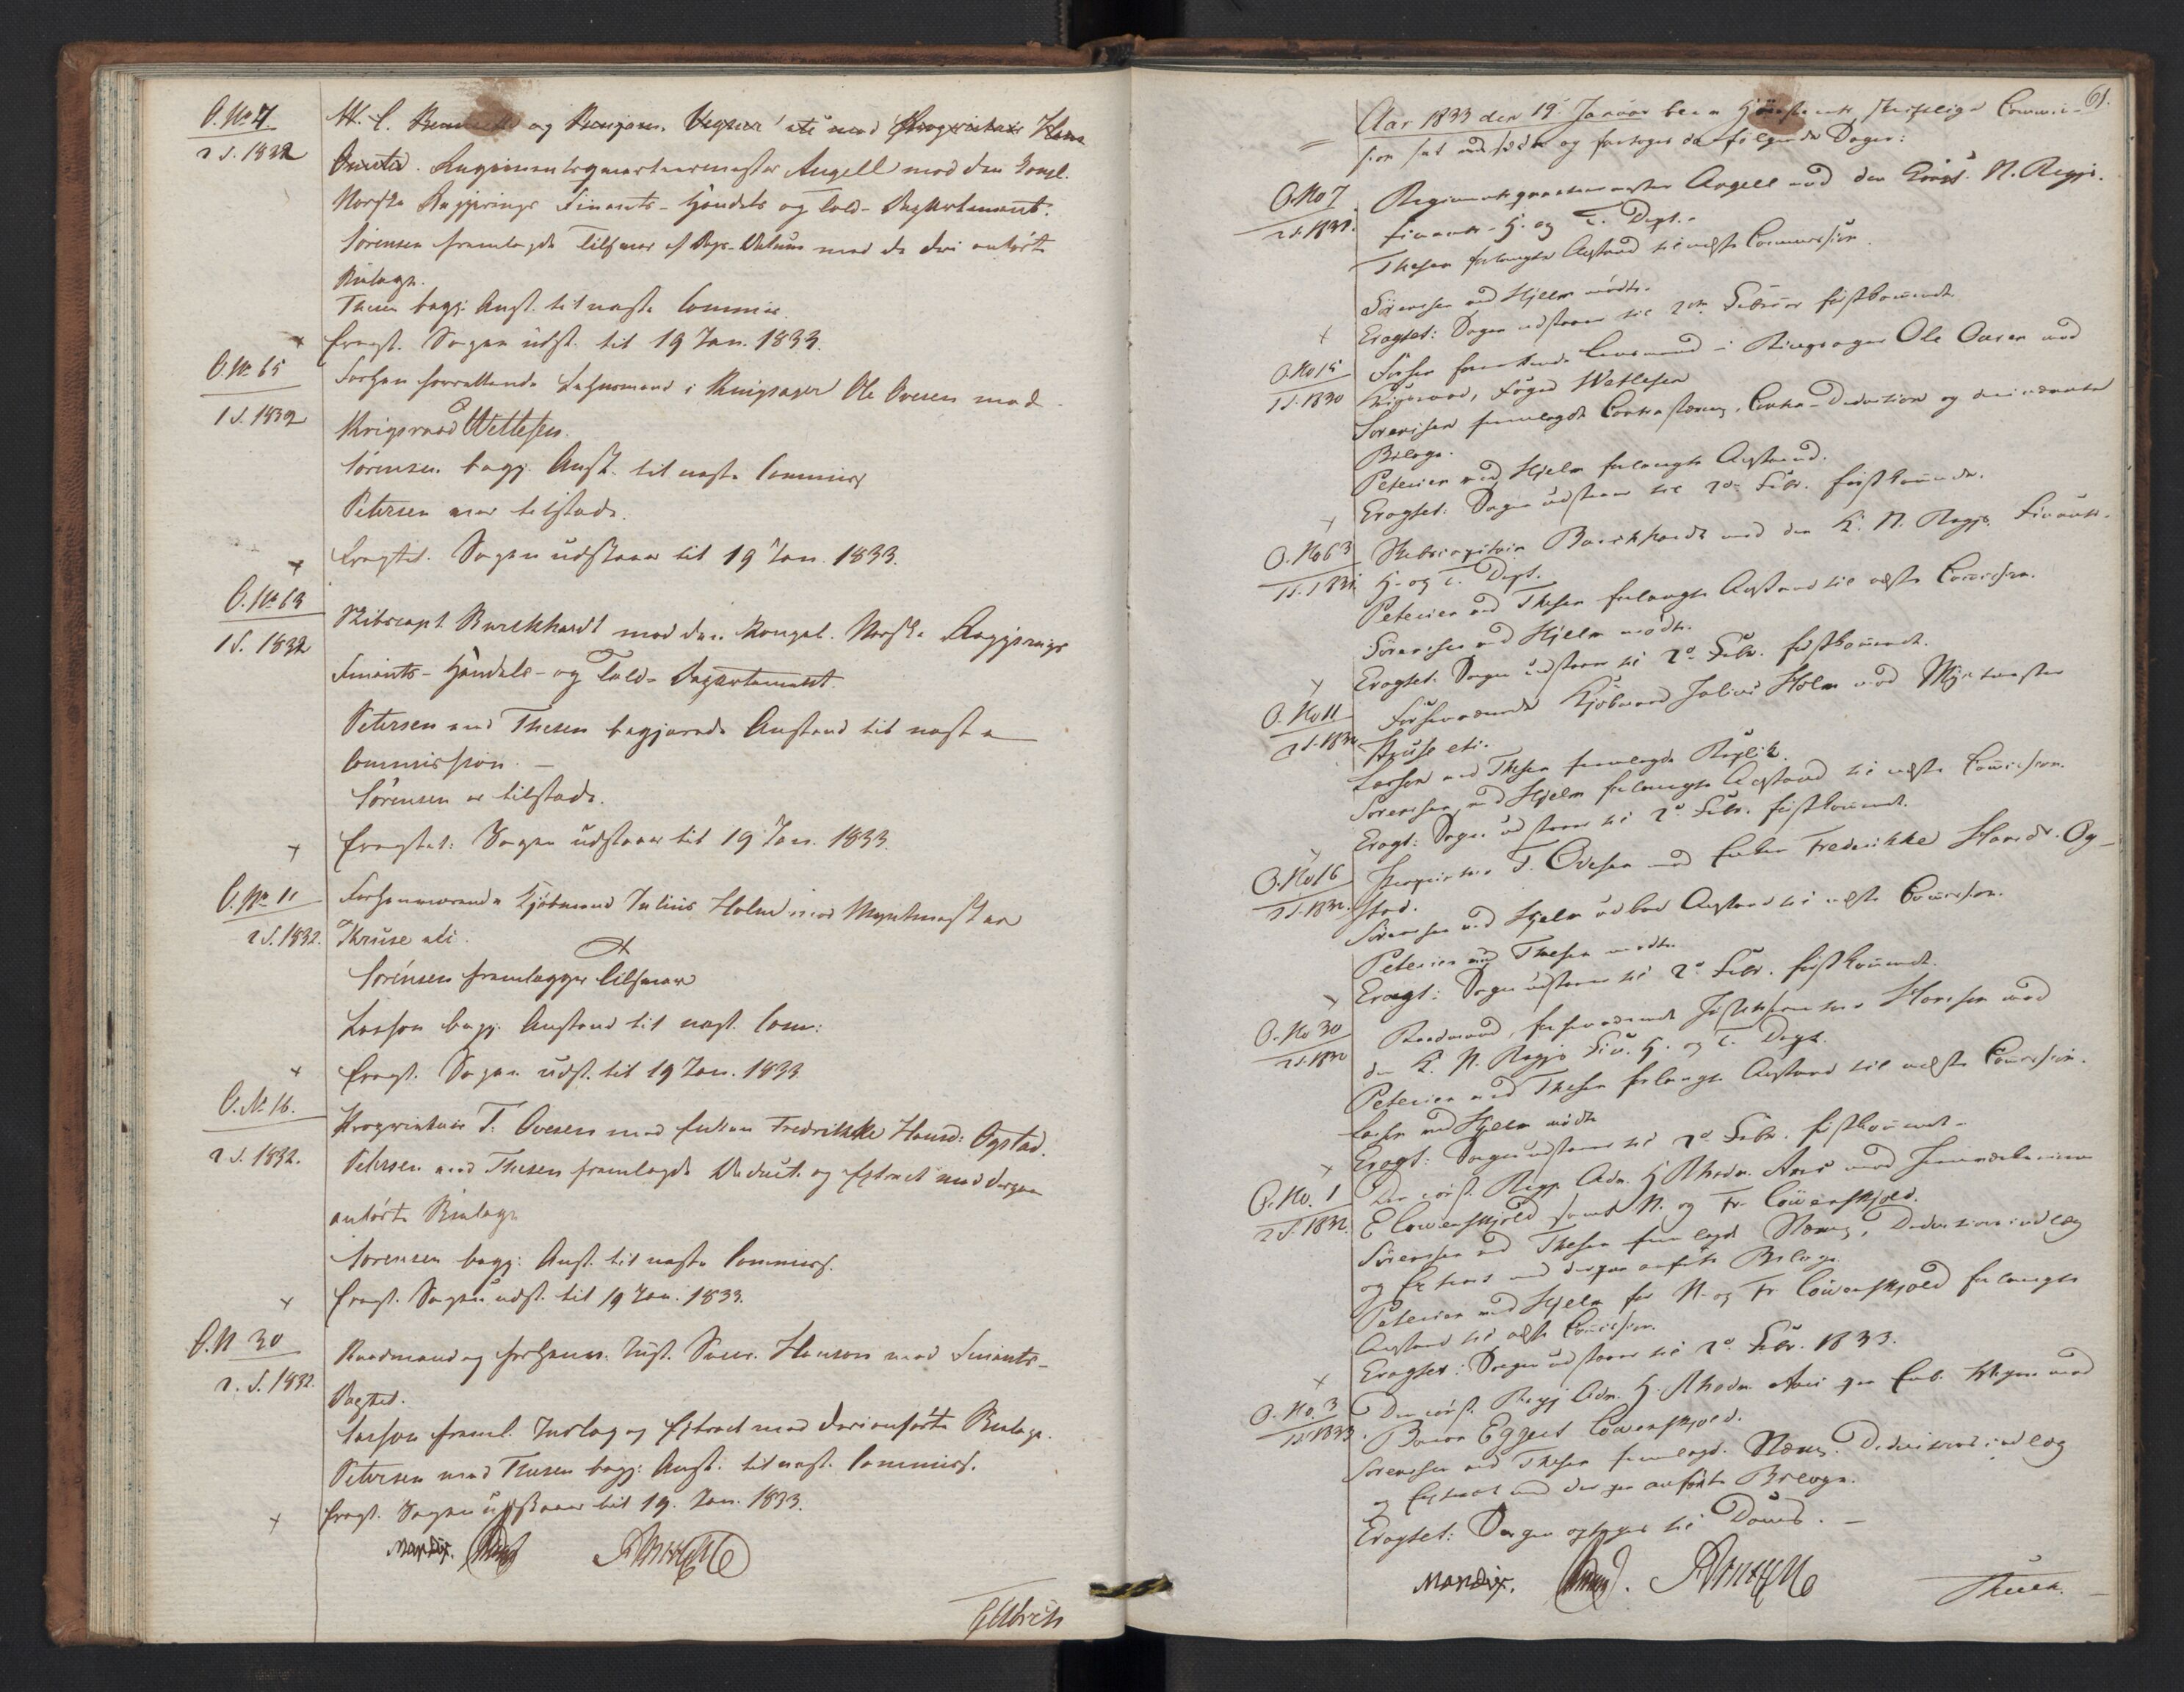 O. No 7
2 S. 1832
W. C. og Benjam. Wegner etc mod Proprietair Hans
Regimentsqvarteermester Angell mod den Kongl.
Norske Regjerings Finants- Handels og Told-Departement.
Sørensen fremlagde Tilsvar af Dags-Datum med de deri anførte
Bielage.
Thesen begj. Anst. til næste Commiss.
x Eragt. Sagen udst. til 19 Jan. 1833.
O. No 65
1 S. 1832
Forhen forrettende Lehnsmand i Ringsager Ole Ovesen mod
Krigsraad Wetlesen.
Sørensen begj. Anst. til næste Commiss
Petersen var tilstede.
x Eragtet. Sagen udstaaer til 19 Jan. 1833.
O. No 63
1 S. 1832
Skibscapt. Burchhardt mod den Kongel. Norske Regjerings
Finants- Handels- og Told- Departement.
Petersen ved Thesen begjærede Anstand til næste
Commission. —
Sørensen er tilstede.
x Eragtet: Sagen udstaaer til 19 Jan. 1833.
O. No 11
2 S. 1832.
Forhenværende Kjøbmand Julius Holm mod Myntmester
Kruse etc.
Sørensen fremlægger Tilsvar
Lasson begj. Anstand til næst. Com:
x Eragt. Sagen udst. til 19 Jan. 1833
O. No 16.
2 S. 1832.
Proprietair T. Ovesen mod Enken Fredrikke Hansd: Ogstad.
Petersen ved Thesen fremlagde Deduct. og Extract med derpaa
anførte Bielage
Sørensen begj: Anst. til næste Commiss.
x Eragt. Sagen udst. til 19 Jan. 1833.
O. N 30
2. S. 1832.
Raadmand og forhenv. Just. Secr. Hanson mod Finants-
Dept.
Lasson freml. Indlæg og Extract med deri anførte Bielage.
Petersen ved Thesen begj: Anst. til næst. Commiss.
x Eragt. Sagen udstaaer til 19. Jan. 1833.
Mandix.
61.
Aar 1833 den 19. Januar blev Høiesterets skriftlige Commis-
sion sat og foretoges da følgende Sager:
O. No 7
2 S. 1832.
Regimentsqvarteermester Angell mod den Kongl. N. Regjs.
Finants- H. og T. Dept.-
Thesen forlangte Anstand til næste Commission.
Sørensen ved Hjelm mødte.
x Eragtet: Sagen udstaaer til 2den Februar førstkommende
O. No 65
1 S. 1832
Forhen forrettende Lensmand i Ringsager Ole Ovesen mod
Krigsraad, Foged Wetlesen
Sørensen fremlagde Contrastævning, Contra-Deduction og deri nævnte
Bilage.
Petersen ved Hjelm forlangte Anstand.
x Eragtet. Sagen udstaaer til 2den Febr. førstkommende.
O. No 63
1 S. 1832
Skibscapitain Burchhardt mod den K. N. Regjs. Finants-
H- og T. Dept.
Petersen ved Thesen forlangte Anstand til næste Commission.
Sørensen ved Hjelm mødte.
x Eragtet. Sagen udstaaer til 2d Febr. førstkommende.
O. No 11
2 S. 1832
Forhenværende Kjøbmand Julius Holm mod Myntmester
Kruse etc.
Lasson ved Thesen fremlagde Replik.
Sørensen ved Hjelm forlangte Anstand til næste Commission.
x Eragt: Sagen udstaaer til 2d Febr. førstkommende.
O. No 16
2 S. 1832.
Proprietair T. Ovesen mod Enken Frederikke Hansdr. Og-
stad.
Sørensen ved Hjelm udbad Anstand til næste Commission.
Petersen ved Thesen mødte
x Eragt: Sagen udstaaer til 2d Febr. førstkommende.
O. No 30
2 S. 1832
Raadmand, forhenværende Justitssecretair Hanson mod
den K. N. Regjs Fin. H. og T. Dept.
Petersen ved Thesen forlangte Anstand til næste Commission.
Lasson ved Hjelm mødte
x Eragt: Sagen udstaaer til 2d Febr. førstkommende-
O. No. 1
2 S. 1832.
Den const. Regj. Adv. H. Rhodn. Ans mod
E Løvenskjold samt N. og Fr. Løvenskjold.
Sørensen ved Thesen fremlagde Stævng, Deductionsindlæg
og Extract med derpaa anførte Bilage
Petersen ved Hjelm for N. og Fr. Løvenskjold forlangte
Anstand til næste Commission.
x Eragtet: Sagen udstaaer til 2d Febr. 1833.
O. No. 3
1 S 1833.
Den const. Regj Adv. H. Rhodn. mod
Baron Eggert Løvenskjold.
Sørensen ved Thesen fremlagde Stævng. Deductionsindlæg
og Extract med derpaa anførte Bilage.
Eragtet: Sagen optages til Doms. —
Mandix.